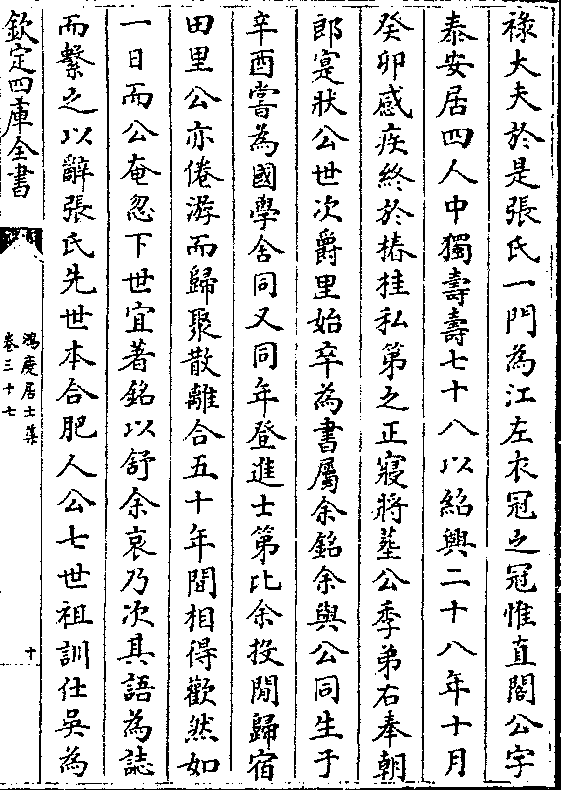 祿大夫於是張氏一門為江左衣冠之冠惟直閣公字
泰安居四人中獨壽壽七十八以紹興二十八年十月
癸卯感疾終於椿桂私第之正寢將塟公季弟右奉朝
郎寔狀公世次爵里始卒為書屬余銘余與公同生于
辛酉嘗為國學舍同又同年登進士第比余投閒歸宿
田里公亦倦游而歸聚散離合五十年間相得歡然如
一日而公奄忽下世宜著銘以舒余哀乃次其語為誌
而繫之以辭張氏先世本合肥人公七世祖訓仕吳為
欽定四庫全書
鴻慶居士集
卷三十七
十